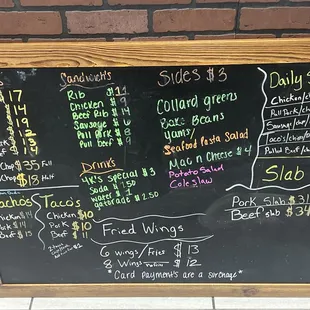 17
14
14
19
12
13
14
Chop $35 Full
Chop $18 Half
Nachos
Chicken $14
Pork $14
Beef $15
Tacos
Chicken $10
Pork $10
Beef $11
Sandwich's
Rib $11
Chicken $9
Beef Rib $14
Sausage $6
Pull Pork $8
Pull beef $9
Drinks
Special $3
Soda
water $2
gatorade $2.50
Sides $3
Collard greens
Bake Beans
yams/
Seafood Pasta Salad
Mac n Cheese $4
Potato Salad
Coleslaw
Daily S
Chicken/
Pull Pork/
Sausage/
Taco's/
Pulled Beef/
Slab
Pork Slab $31
Beef Slab $34
Fried Wings
6 wings/Fries $13
8 Wings $12
*Card Payment's are a surcharge*